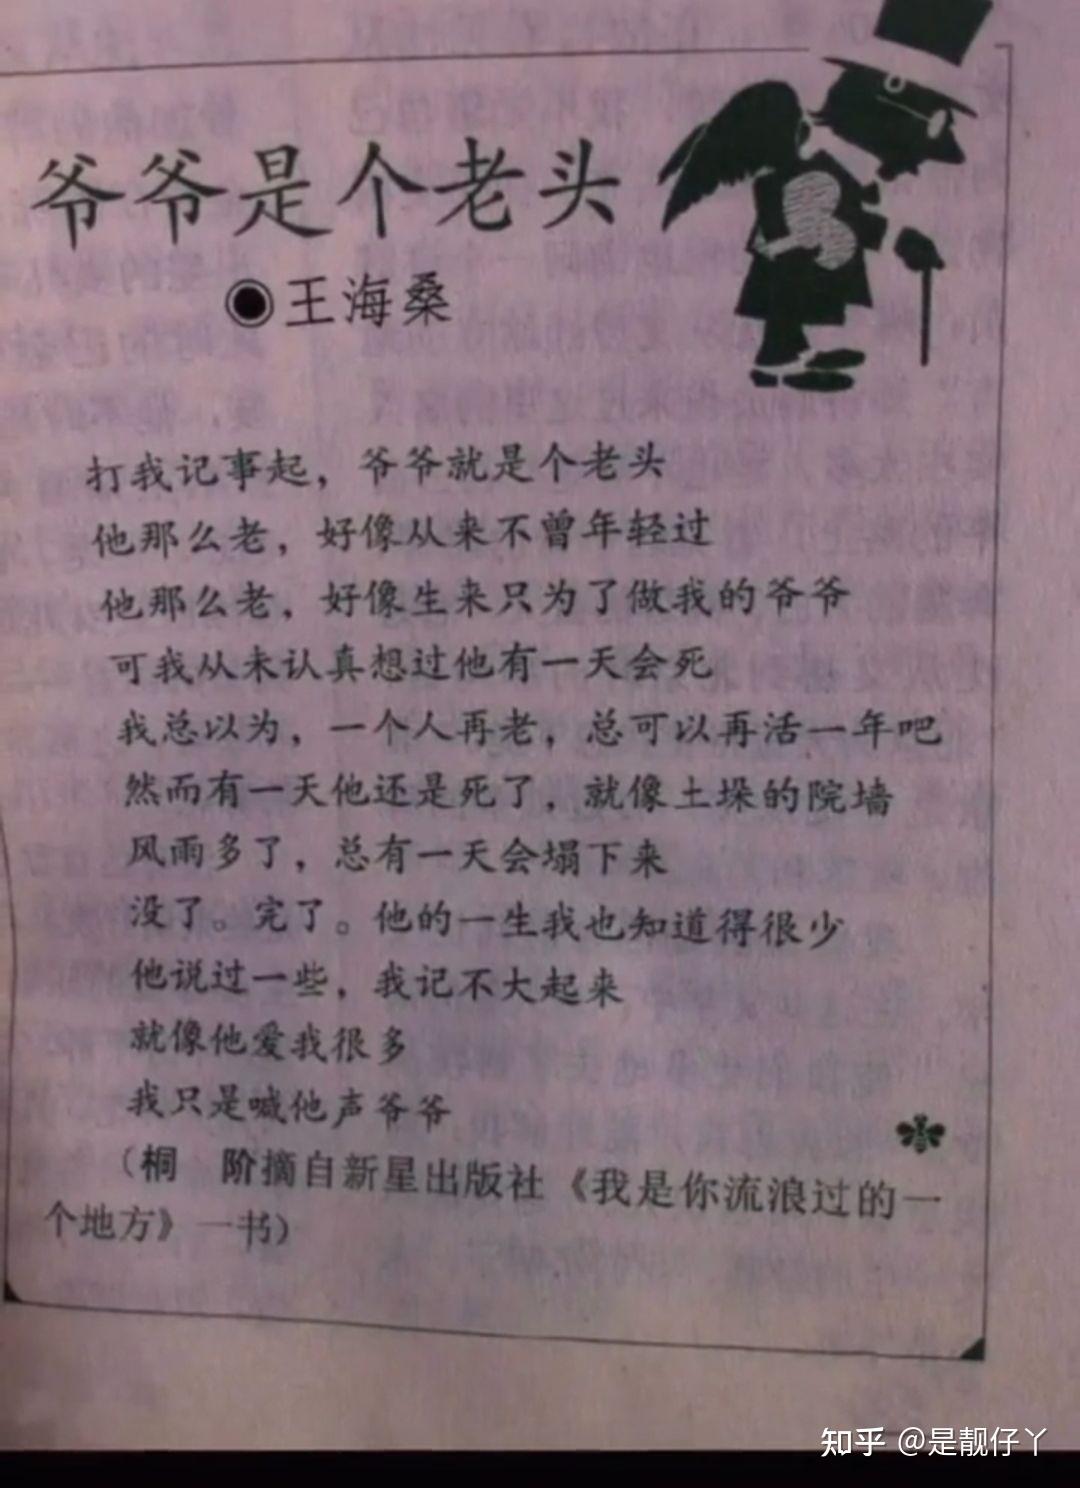 爷爷是个老头
◉王海桑
打我记事起，爷爷就是个老头
他那么老，好像从来不曾年轻过
他那么老，好像生来只为了做我的爷爷
可我从未认真想过他有一天会死
我总以为，一个人再老，总可以再活一年吧
然而有一天他还是死了，就像土垛的院墙
风雨多了，总有一天会塌下来
没了。完了。他的一生我也知道得很少
他说过一些，我记不大起来
就像他爱我很多
我只是喊他声爷爷
（桐　阶摘自新星出版社《我是你流浪过的一
个地方》一书）
知乎 @是靓仔丫